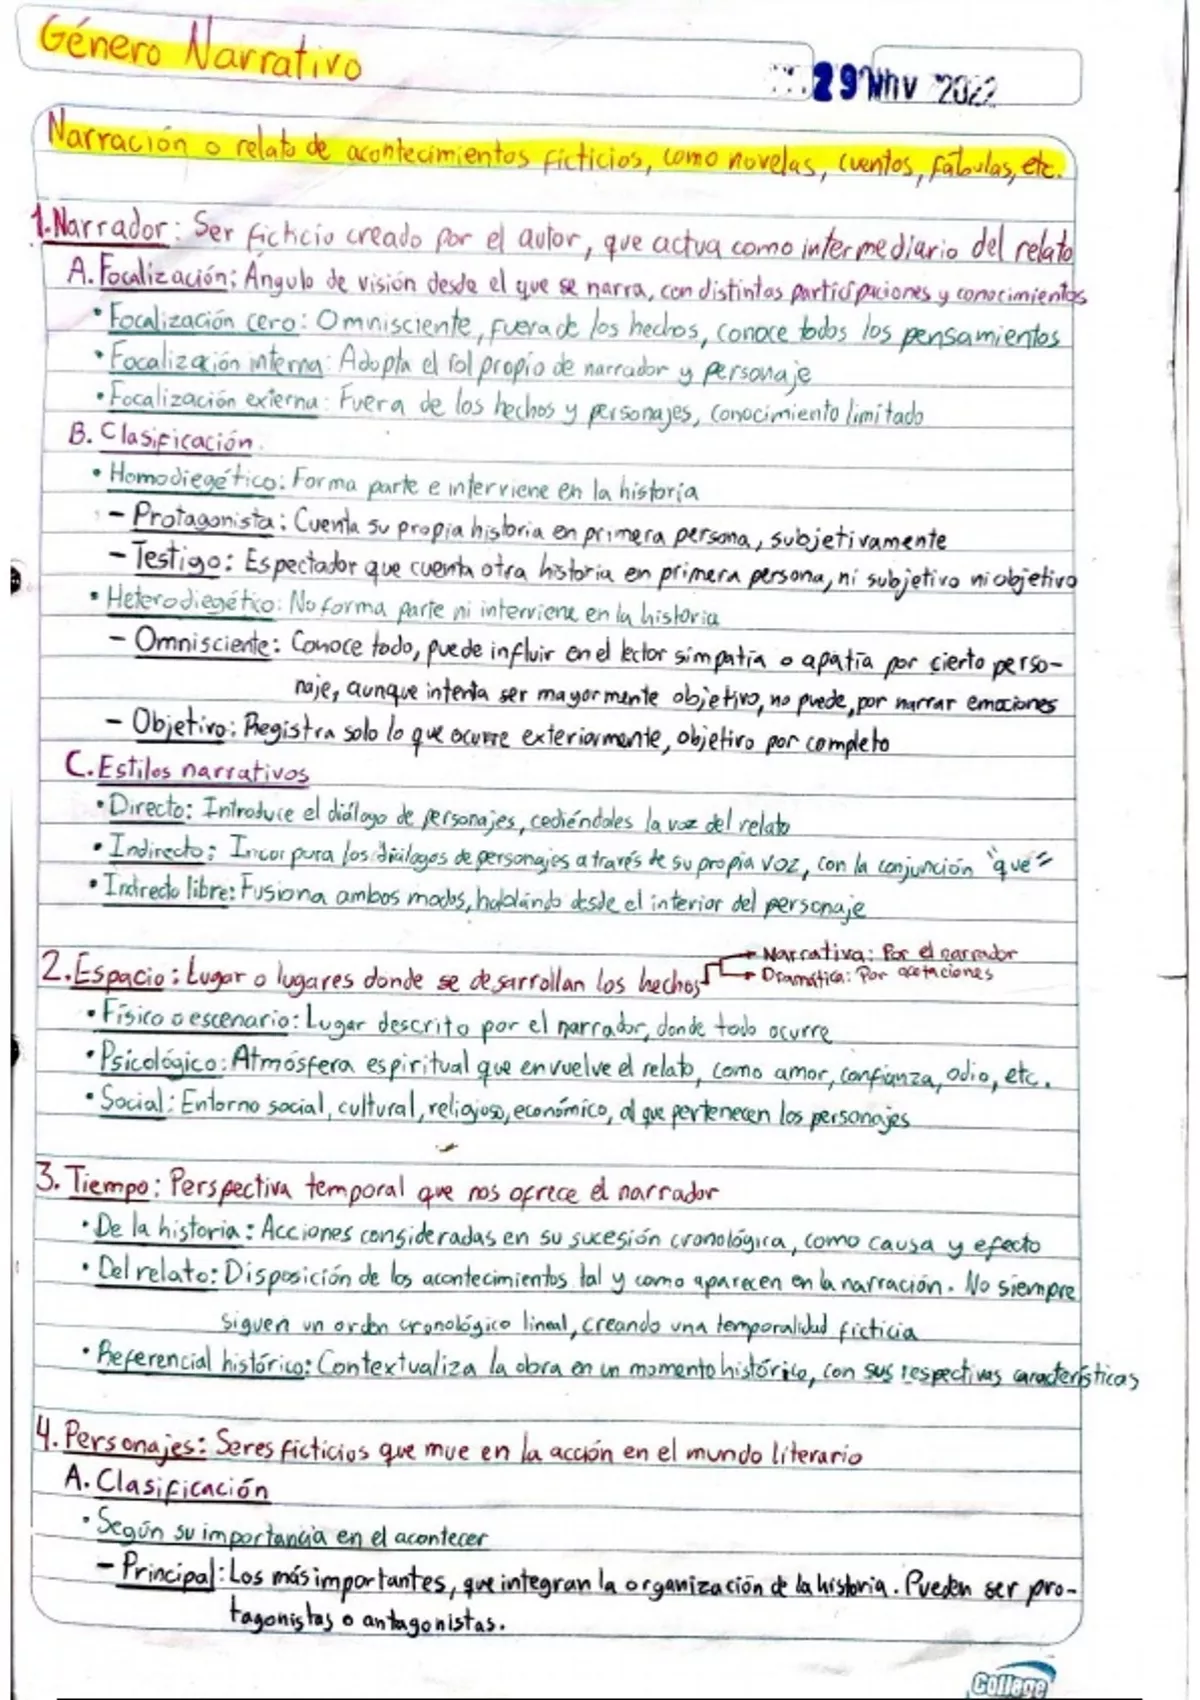 Género Narrativo
29 Nov 2022
Narración o relato de acontecimientos ficticios, como novelas, cuentos, fábulas, etc.
1. Narrador: Ser ficticio creado por el autor, que actua como intermediario del relato
A. Focalización: Ángulo de visión desde el que se narra, con distintas participaciones y conocimientos
• Focalización cero: Omnisciente, fuera de los hechos, conoce todos los pensamientos
• Focalización interna: Adopta el rol propio de narrador y personaje
• Focalización externa: Fuera de los hechos y personajes, conocimiento limitado
B. Clasificación.
• Homodiegético: Forma parte e interviene en la historia
- Protagonista: Cuenta su propia historia en primera persona, subjetivamente
- Testigo: Espectador que cuenta otra historia en primera persona, ni subjetivo ni objetivo
• Heterodiegético: No forma parte ni interviene en la historia
- Omnisciente: Conoce todo, puede influir en el lector simpatía o apatía por cierto perso-
naje, aunque intenta ser mayormente objetivo, no puede, por narrar emociones
- Objetivo: Registra solo lo que ocurre exteriormente, objetivo por completo
C. Estilos narrativos
• Directo: Introduce el diálogo de personajes, cediéndoles la voz del relato
• Indirecto: Incorpora los diálogos de personajes a través de su propia voz, con la conjunción "que"
• Indirecto libre: Fusiona ambos modos, hablándo desde el interior del personaje
2. Espacio: Lugar o lugares donde se desarrollan los hechos
→ Narrativa: Por el narrador
→ Dramática: Por acotaciones
• Físico o escenario: Lugar descrito por el narrador, donde todo ocurre
• Psicológico: Atmósfera espiritual que envuelve el relato, como amor, confianza, odio, etc.
• Social: Entorno social, cultural, religioso, económico, al que pertenecen los personajes
3. Tiempo: Perspectiva temporal que nos ofrece el narrador
• De la historia: Acciones consideradas en su sucesión cronológica, como causa y efecto
• Del relato: Disposición de los acontecimientos tal y como aparecen en la narración. No siempre
siguen un orden cronológico lineal, creando una temporalidad ficticia
• Referencial histórico: Contextualiza la obra en un momento histórico, con sus respectivas características
4. Personajes: Seres ficticios que mue en la acción en el mundo literario
A. Clasificación
• Según su importancia en el acontecer
- Principal: Los más importantes, que integran la organización de la historia. Pueden ser pro-
tagonistas o antagonistas.
College